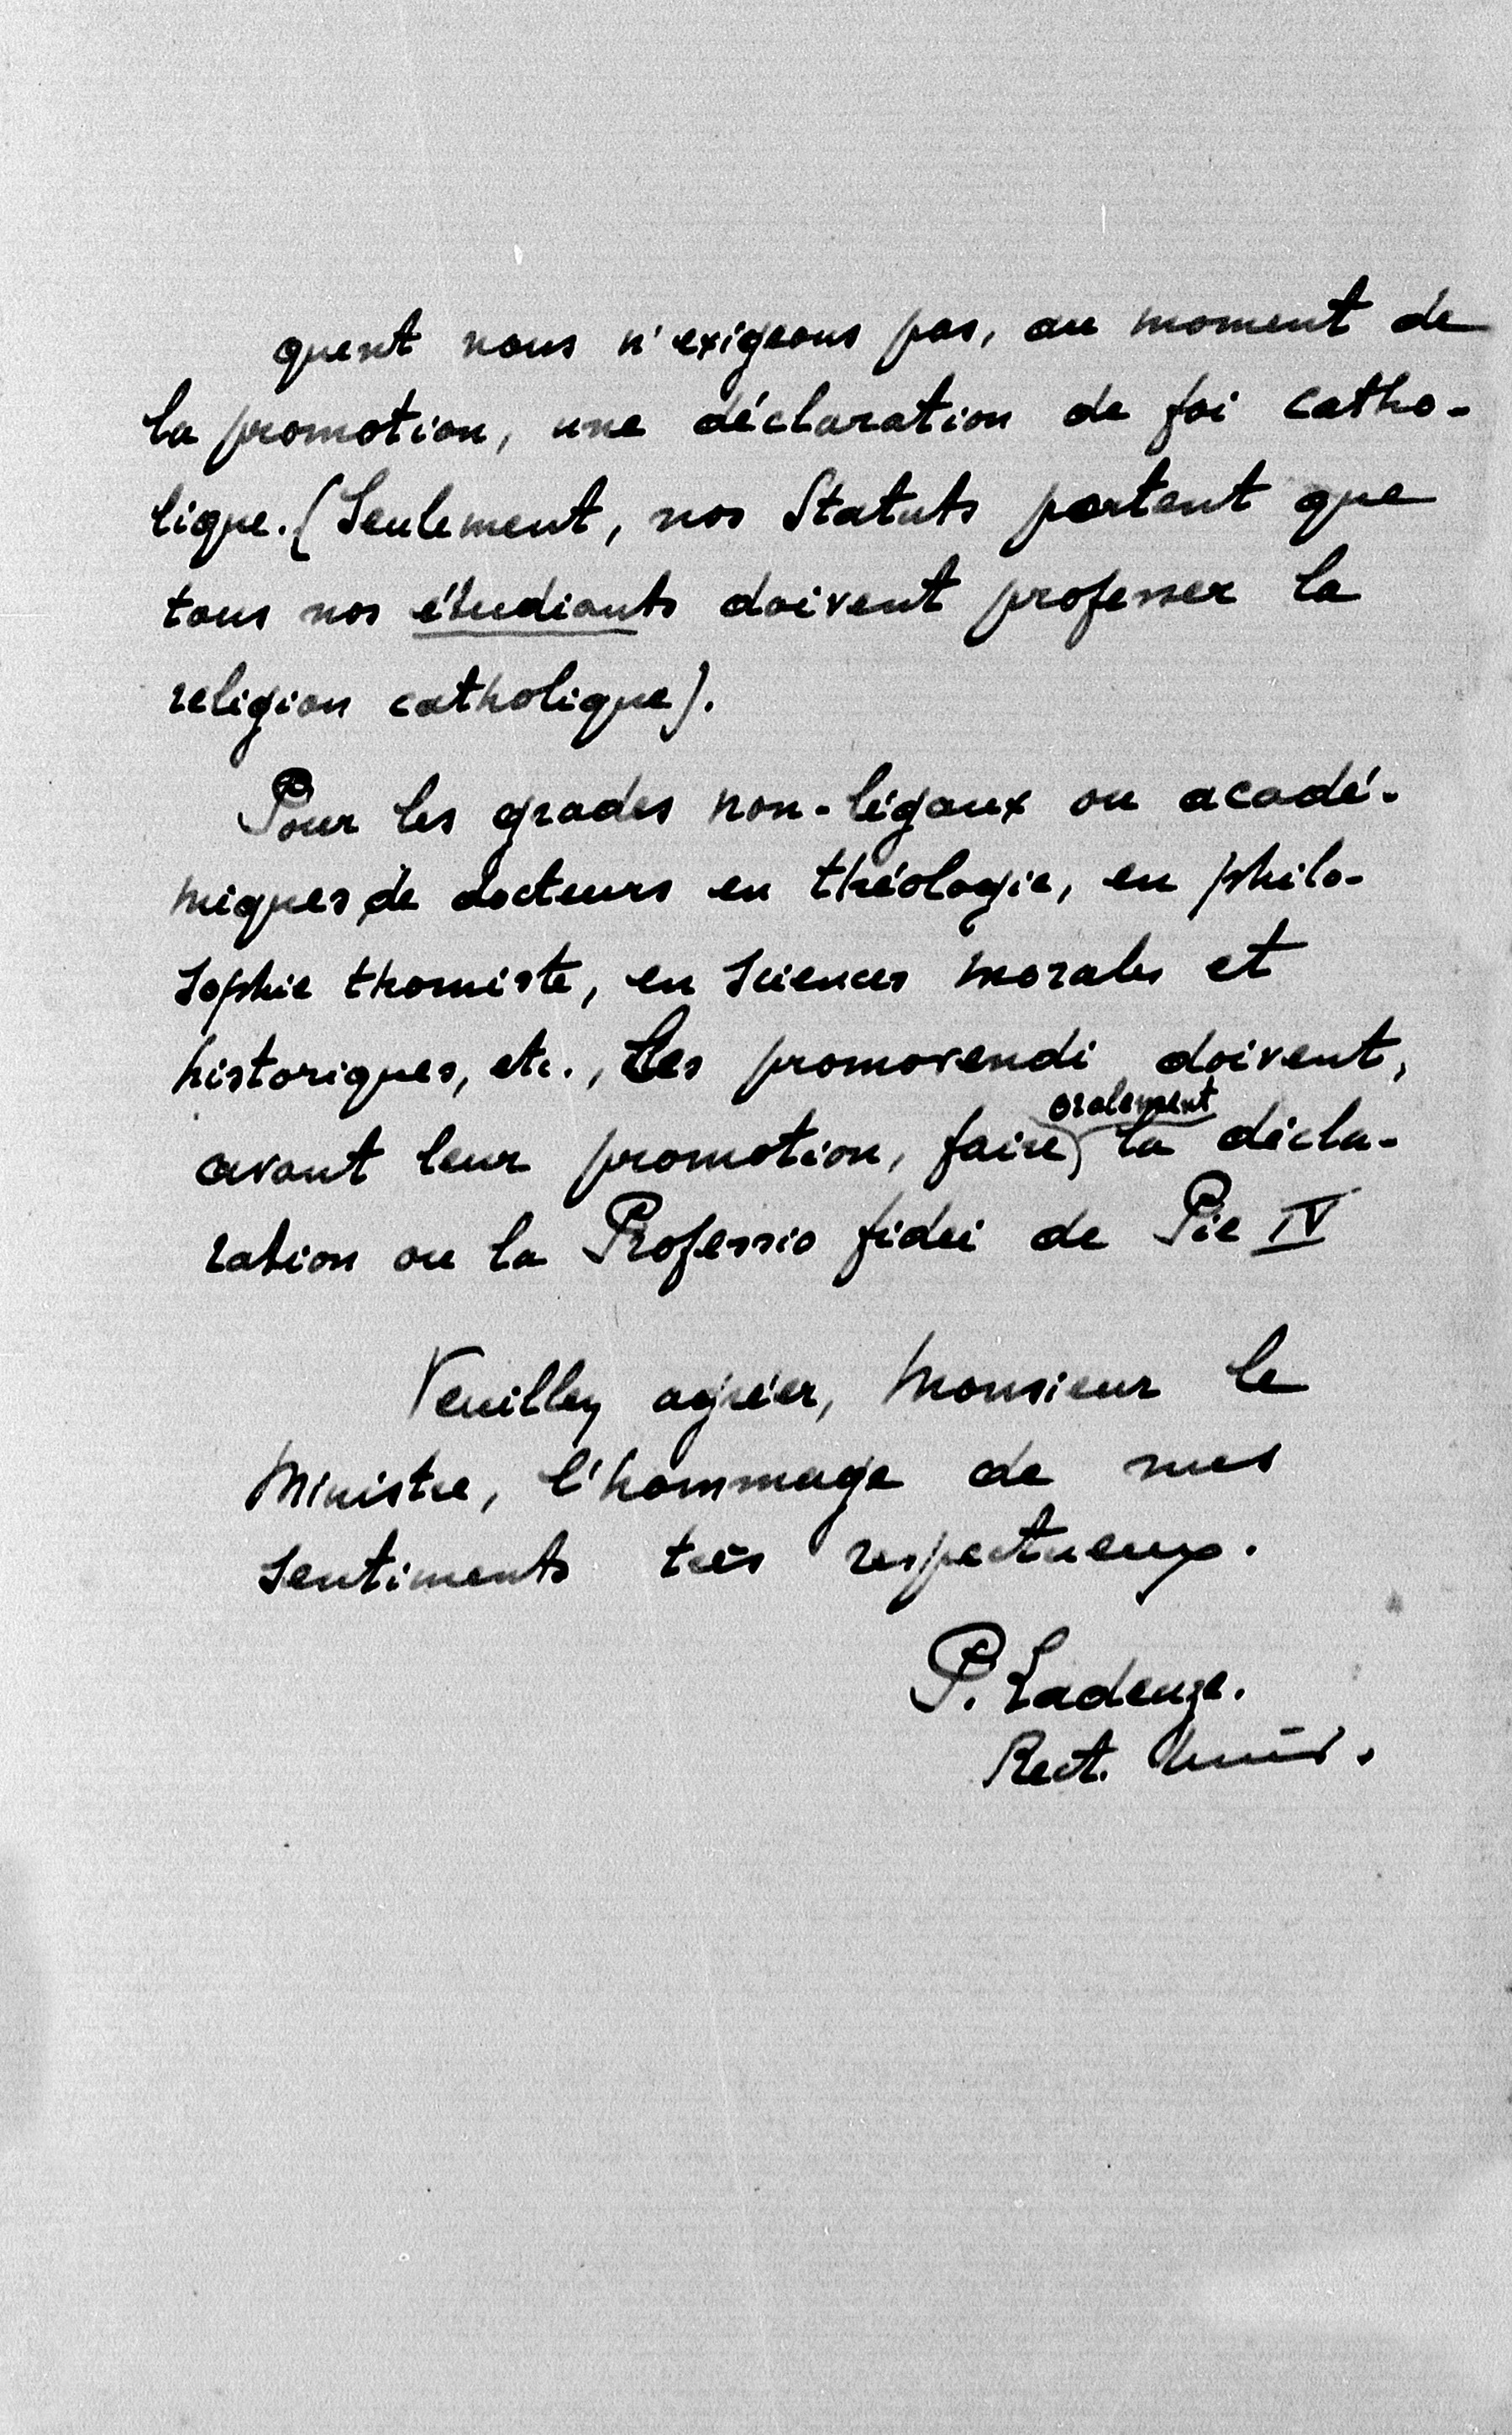 quent nous n'exigeons pas, au moment de
la promotion, une déclaration de foi catho-
lique. (Seulement, nos Statuts portent que
tous nos étudiants doivent professer la
religion catholique).
Pour les grades non-légaux ou acadé-
miques, de docteurs en théologie, en philo-
sophie thomiste, en sciences morales et
historiques, etc., les promovendi doivent,
oralement
avant leur promotion, faire la décla-
ration ou la Professio fidei de Pie IV
Veuillez agréer, Monsieur le
Ministre, l'hommage de mes
sentiments très respectueux.
P. Ladeuze.
Rect. Univ.